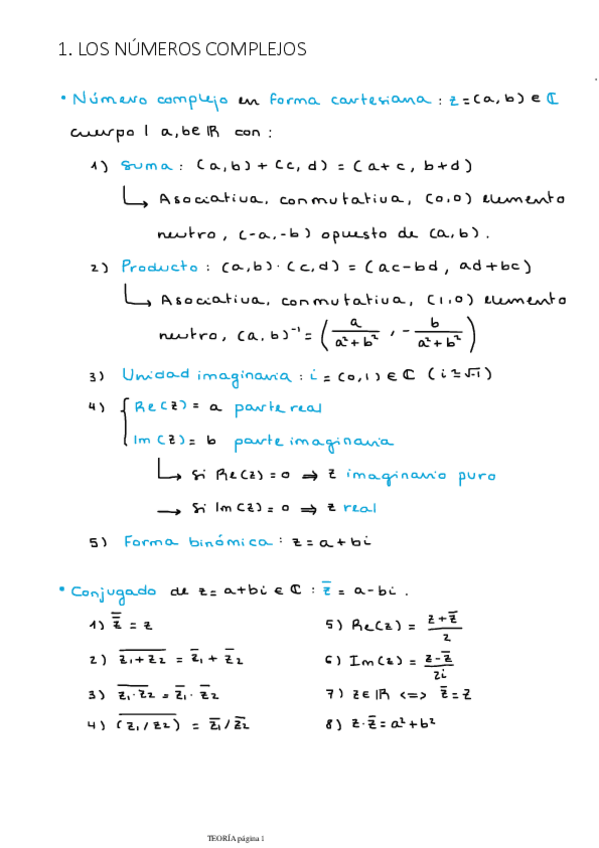 1. LOS NÚMEROS COMPLEJOS
• Número complejo en forma cartesiana : z = (a, b) ∈ ℂ
cuerpo | a, b ∈ ℝ con :
1) Suma : (a, b) + (c, d) = (a + c, b + d)
↳ Asociativa, conmutativa, (0,0) elemento
neutro, (-a, -b) opuesto de (a, b).
2) Producto : (a, b) · (c, d) = (ac - bd, ad + bc)
↳ Asociativa, conmutativa, (1,0) elemento
neutro, (a, b)⁻¹ = (a/(a² + b²), - b/(a² + b²))
3) Unidad imaginaria : i = (0,1) ∈ ℂ (i = √-1)
4) { Re(z) = a parte real
Im(z) = b parte imaginaria
↳ Si Re(z) = 0 ⇒ z imaginario puro
→ Si Im(z) = 0 ⇒ z real
5) Forma binómica : z = a + bi
• Conjugado de z = a + bi ∈ ℂ : z̄ = a - bi.
1) z̿ = z 5) Re(z) = (z + z̄)/2
2) \overline{z₁ + z₂} = z̄₁ + z̄₂ 6) Im(z) = (z - z̄)/2i
3) \overline{z₁ · z₂} = z̄₁ · z̄₂ 7) z ∈ ℝ <=> z̄ = z
4) \overline{(z₁ / z₂)} = z̄₁ / z̄₂ 8) z · z̄ = a² + b²
TEORÍA página 1